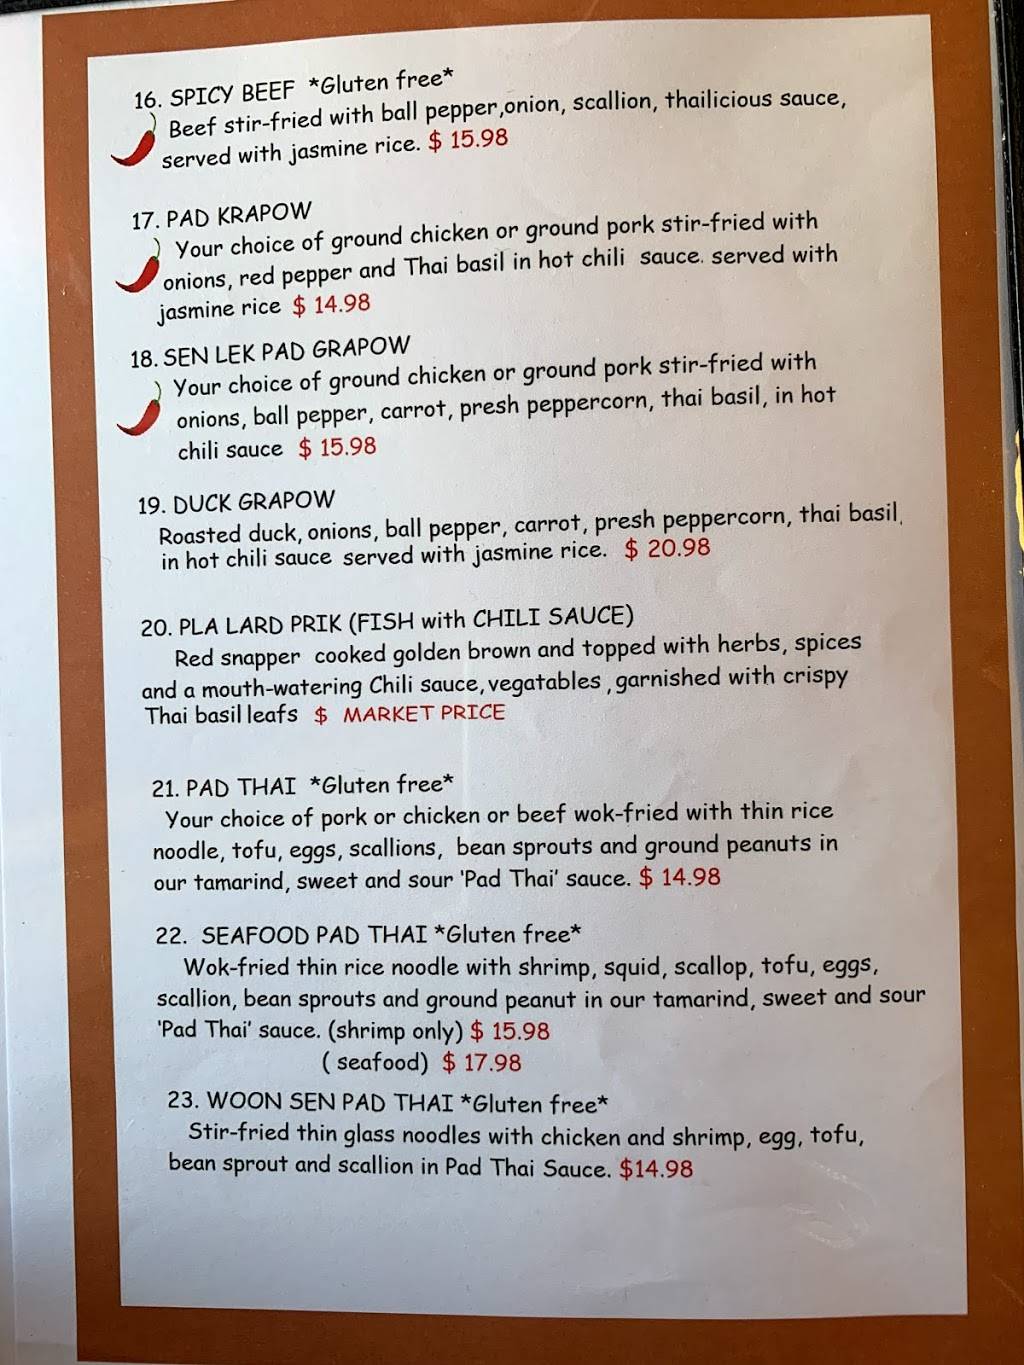 16. SPICY BEEF *Gluten free*
Beef stir-fried with ball pepper,onion, scallion, thailicious sauce,
served with jasmine rice. $ 15.98
17. PAD KRAPOW
Your choice of ground chicken or ground pork stir-fried with
onions, red pepper and Thai basil in hot chili sauce. served with
jasmine rice $ 14.98
18. SEN LEK PAD GRAPOW
Your choice of ground chicken or ground pork stir-fried with
onions, ball pepper, carrot, presh peppercorn, thai basil, in hot
chili sauce $ 15.98
19. DUCK GRAPOW
Roasted duck, onions, ball pepper, carrot, presh peppercorn, thai basil,
in hot chili sauce served with jasmine rice. $ 20.98
20. PLA LARD PRIK (FISH with CHILI SAUCE)
Red snapper cooked golden brown and topped with herbs, spices
and a mouth-watering Chili sauce, vegatables , garnished with crispy
Thai basil leafs $ MARKET PRICE
21. PAD THAI *Gluten free*
Your choice of pork or chicken or beef wok-fried with thin rice
noodle, tofu, eggs, scallions, bean sprouts and ground peanuts in
our tamarind, sweet and sour 'Pad Thai' sauce. $ 14.98
22. SEAFOOD PAD THAI *Gluten free*
Wok-fried thin rice noodle with shrimp, squid, scallop, tofu, eggs,
scallion, bean sprouts and ground peanut in our tamarind, sweet and sour
'Pad Thai' sauce. (shrimp only) $ 15.98
( seafood) $ 17.98
23. WOON SEN PAD THAI *Gluten free*
Stir-fried thin glass noodles with chicken and shrimp, egg, tofu,
bean sprout and scallion in Pad Thai Sauce. $14.98